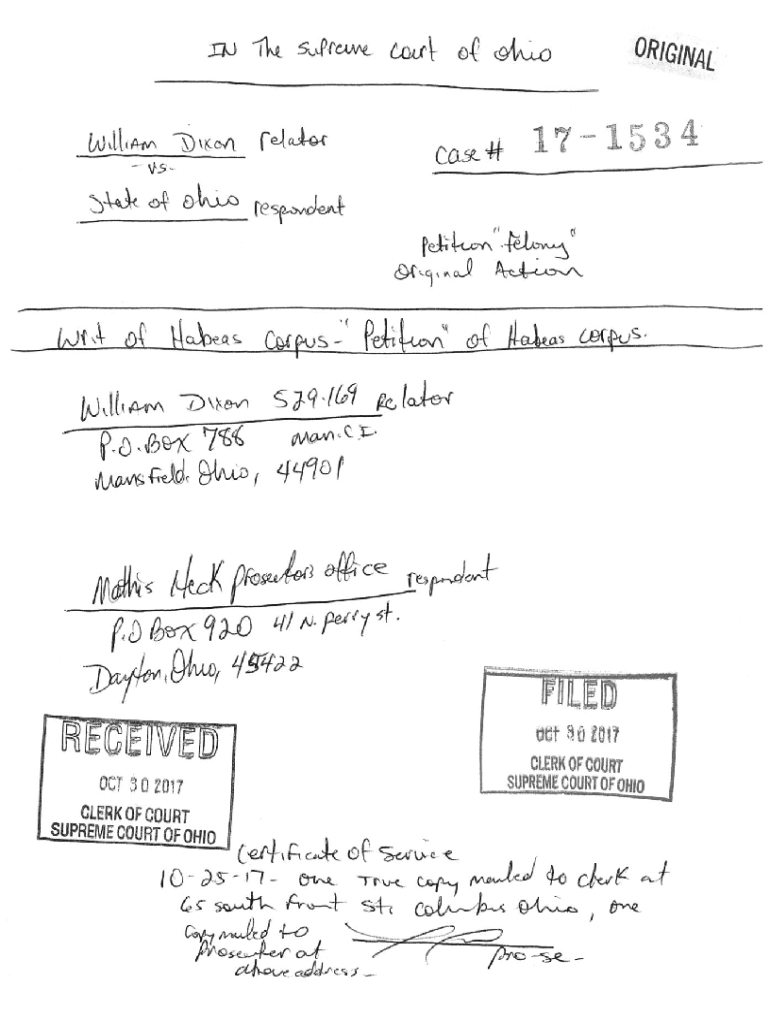 IN The Supreme Court of Ohio
ORIGINAL
William Dixon relator
-vs-
State of Ohio respondent
Case # 17-1534
Petition "felony"
Original Action
Writ of Habeas Corpus - "Petition" of Habeas Corpus.
William Dixon 529-169 Relator
P.O. Box 788 Man.C.I.
Mansfield, Ohio, 44901
Mathis Heck Prosecutors office respondent
P.O Box 920 41 N. Perry st.
Dayton, Ohio, 45422
FILED
OCT 30 2017
CLERK OF COURT
SUPREME COURT OF OHIO
RECEIVED
OCT 30 2017
CLERK OF COURT
SUPREME COURT OF OHIO
Certificate of Service
10-25-17- one True copy mailed to clerk at
65 south Front St. Columbus Ohio, one
Copy mailed to
Prosecuter at
above address-
pro-se-